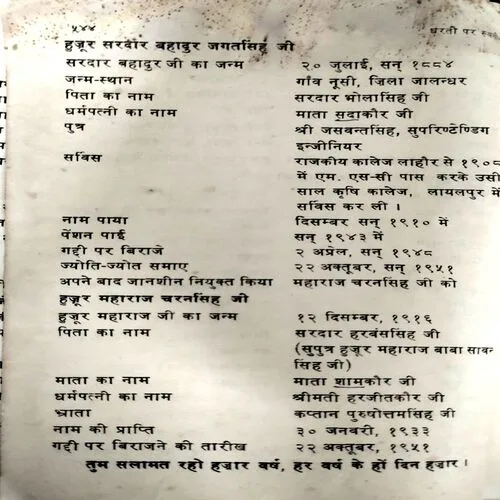 ५४४ धरती पर
हुज़ूर सरदार बहादुर जगतसिंह जी
सरदार बहादुर जी का जन्म २० जुलाई, सन् १८८४
जन्म-स्थान गाँव नूसी, ज़िला जालन्धर
पिता का नाम सरदार भोलासिंह जी
धर्मपत्नी का नाम माता सदाकौर जी
पुत्र श्री जसवन्तसिंह, सुपरिण्टेण्डिग
इन्जीनियर
सर्विस राजकीय कालेज लाहौर से १९०८
में एम. एस-सी पास करके उसी
साल कृषि कालेज, लायलपुर में
सर्विस कर ली ।
नाम पाया दिसम्बर सन् १९१० में
पेंशन पाई सन् १९४३ में
गद्दी पर बिराजे २ अप्रेल, सन् १९४८
ज्योति-ज्योत समाए २२ अक्तूबर, सन् १९५१
अपने बाद जानशीन नियुक्त किया महाराज चरनसिंह जी को
हुज़ूर महाराज चरनसिंह जी
हुज़ूर महाराज जी का जन्म १२ दिसम्बर, १९१६
पिता का नाम सरदार हरबंससिंह जी
(सुपुत्र हुज़ूर महाराज बाबा सावन
सिंह जी)
माता का नाम माता शामकौर जी
धर्मपत्नी का नाम श्रीमती हरजीतकौर जी
भ्राता कप्तान पुरुषोत्तमसिंह जी
नाम की प्राप्ति ३० जनवरी, १९३३
गद्दी पर बिराजने की तारीख २२ अक्तूबर, १९५१
तुम सलामत रहो हज़ार वर्ष, हर वर्ष के हों दिन हज़ार ।